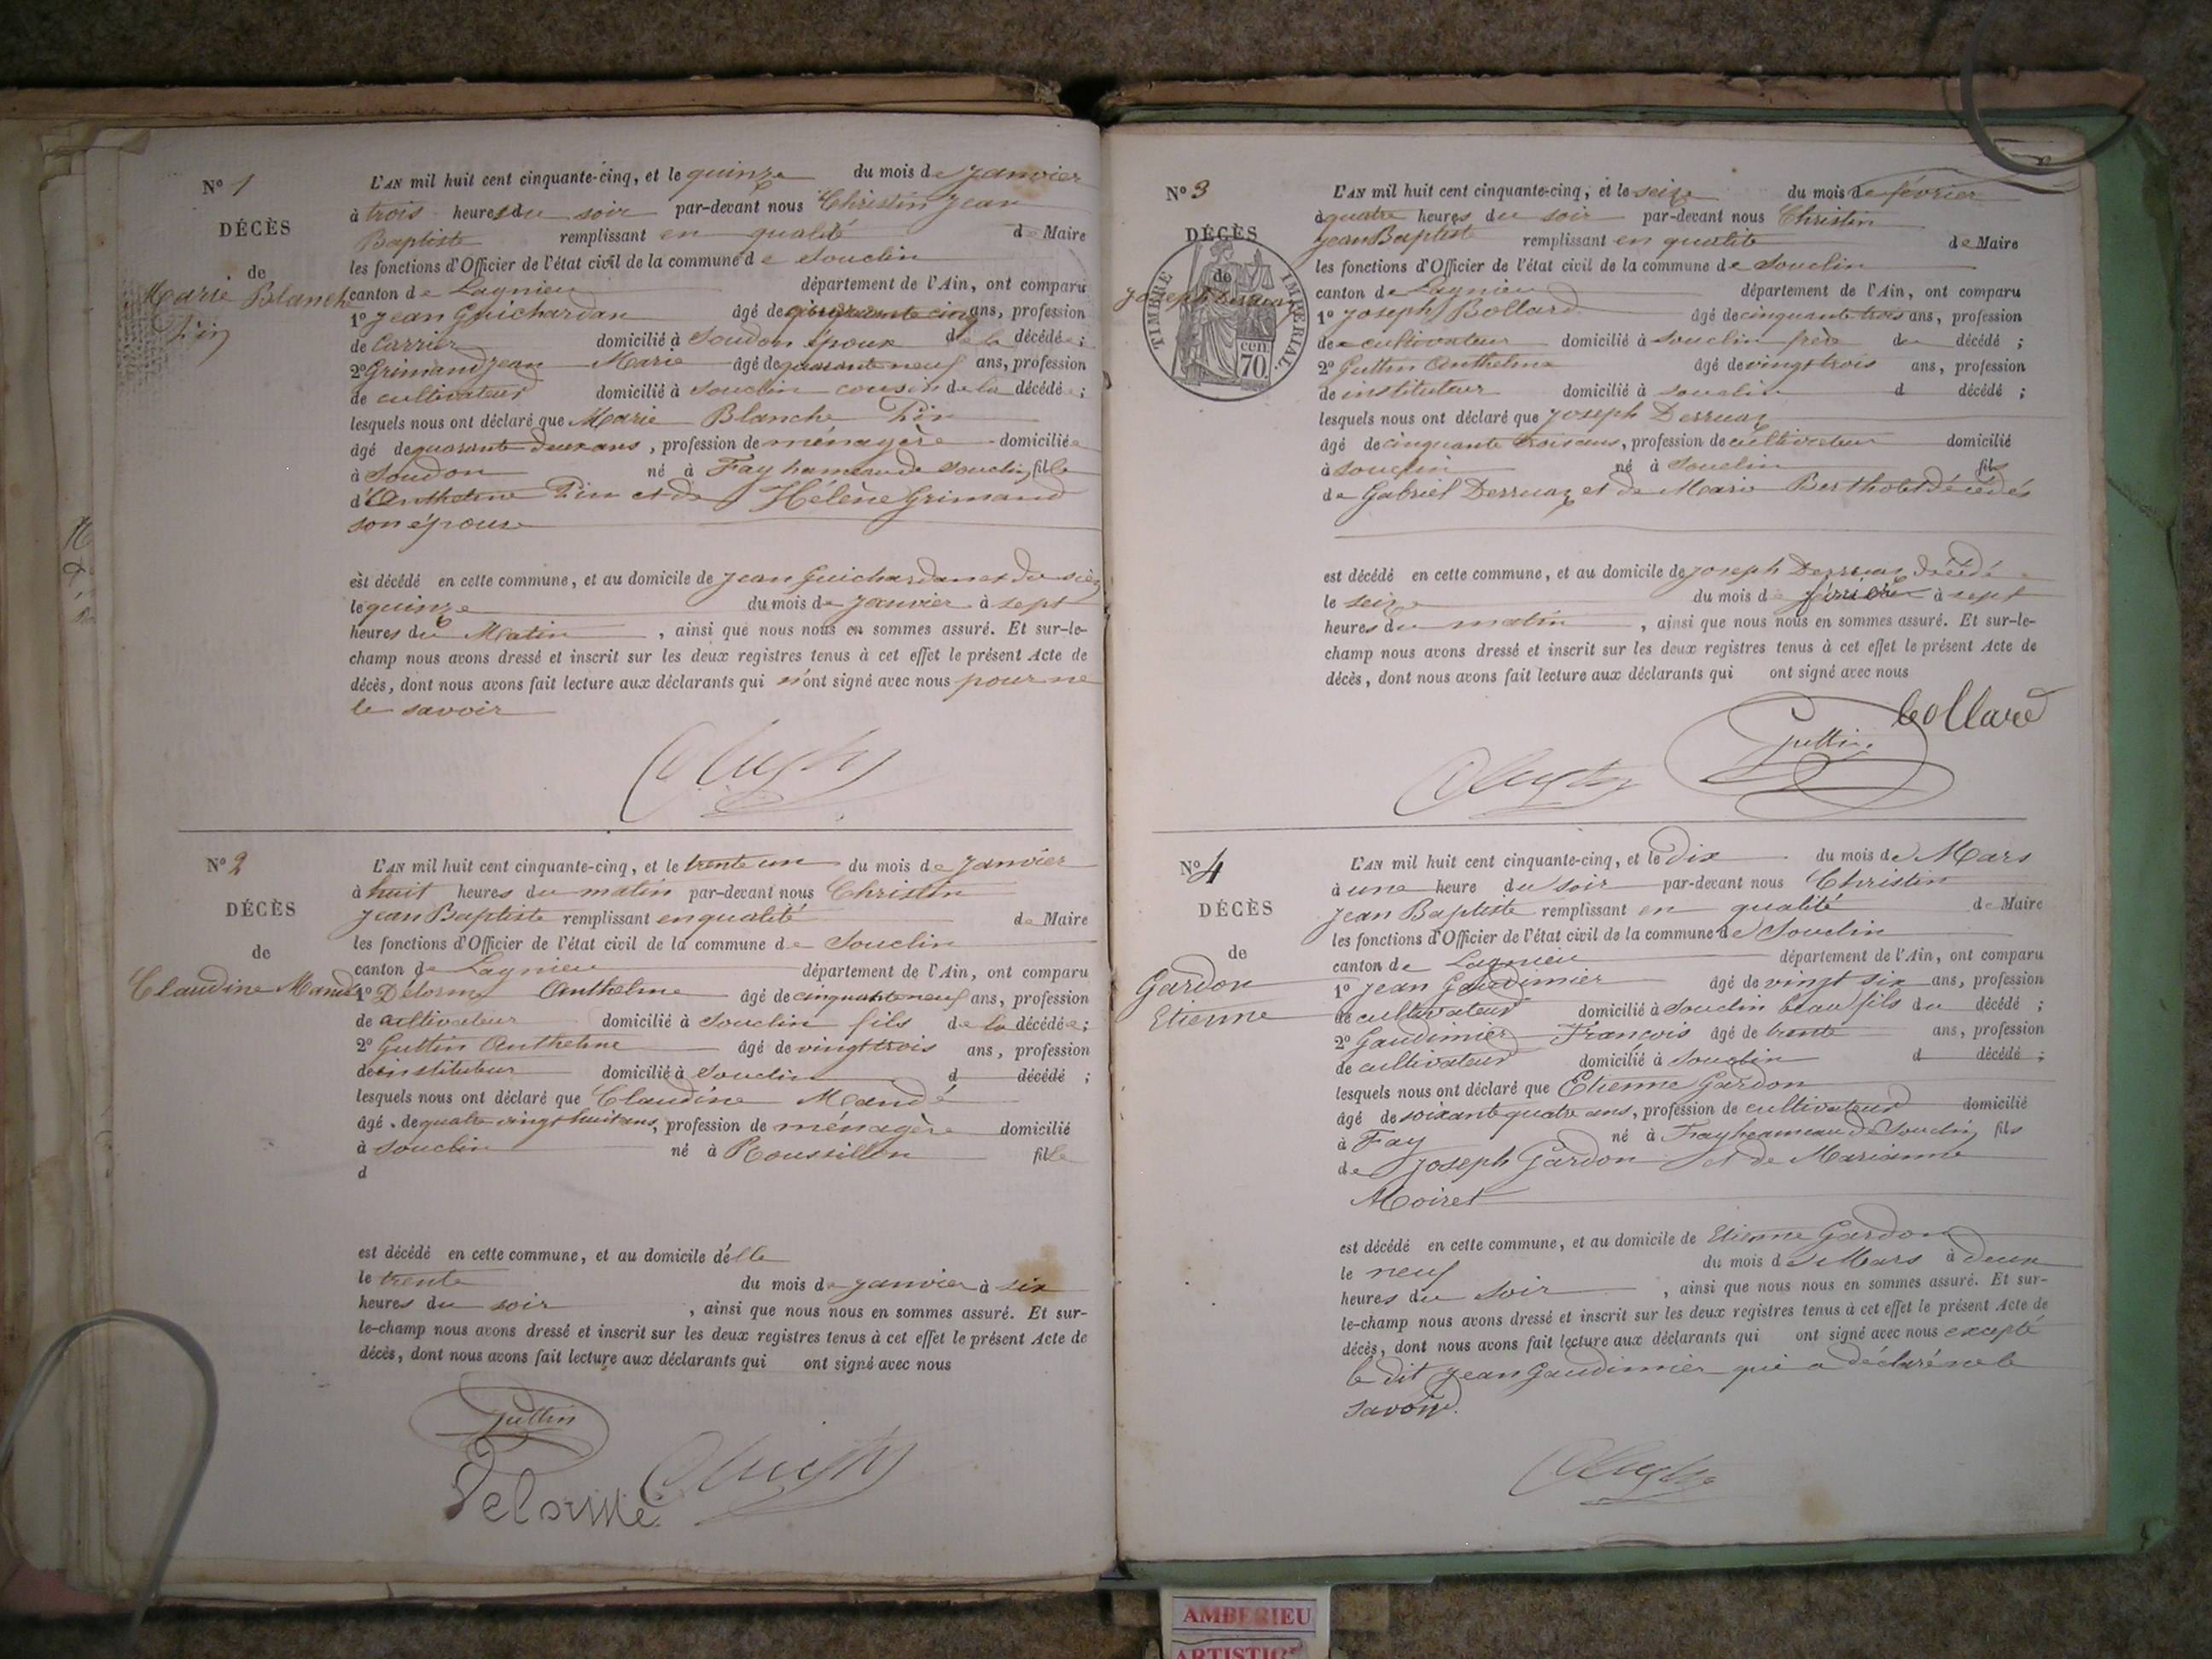 Nº 1
DÉCÈS
de
Marie Blanche
Pin
L'AN mil huit cent cinquante-cinq, et le quinze du mois de Janvier
à trois heures du soir par-devant nous Christin Jean
Baptiste remplissant en qualité de Maire
les fonctions d'Officier de l'état civil de la commune de Souclin
canton de Lagnieu département de l'Ain, ont comparu
1º Jean Guichardan âgé de cinq ans, profession
de Carrier domicilié à Soudon époux de la décédée ;
2º Grimand Jean Marie âgé de quarante neuf ans, profession
de cultivateur domicilié à Souclin cousin de la décédée ;
lesquels nous ont déclaré que Marie Blanche Pin
âgé de quarante deux ans, profession de ménagère domiciliée
à Soudon né à Fay hameau de Souclin, fille
d'Anthelme Pin et de Hélène Grimand
son épouse
est décédé en cette commune, et au domicile de Jean Guichardan et du sien
le quinze du mois de Janvier à sept
heures du Matin, ainsi que nous nous en sommes assuré. Et sur-le-
champ nous avons dressé et inscrit sur les deux registres tenus à cet effet le présent Acte de
décès, dont nous avons fait lecture aux déclarants qui n'ont signé avec nous pour ne
le savoir
Nº 2
DÉCÈS
de
Claudine Mandé
L'AN mil huit cent cinquante-cinq, et le trente un du mois de Janvier
à huit heures du matin par-devant nous Christin
Jean Baptiste remplissant en qualité de Maire
les fonctions d'Officier de l'état civil de la commune de Souclin
canton de Lagnieu département de l'Ain, ont comparu
1º Delorme Anthelme âgé de cinquante neuf ans, profession
de cultivateur domicilié à Souclin fils de la décédée ;
2º Guttin Anthelme âgé de vingt trois ans, profession
de instituteur domicilié à Souclin d décédé ;
lesquels nous ont déclaré que Claudine Mandé
âgé de quatre vingt huit ans, profession de ménagère domicilié
à Souclin né à Roussillon fille
d
est décédé en cette commune, et au domicile d'elle
le trente du mois de Janvier à six
heures du soir, ainsi que nous nous en sommes assuré. Et sur-
le-champ nous avons dressé et inscrit sur les deux registres tenus à cet effet le présent Acte de
décès, dont nous avons fait lecture aux déclarants qui ont signé avec nous
Guttin
Delorme
Nº 3
DÉCÈS
de
Joseph Derruaz
TIMBRE IMPÉRIAL
cen
70
L'AN mil huit cent cinquante-cinq, et le seize du mois de février
à quatre heures du soir par-devant nous Christin
Jean Baptiste remplissant en qualité de Maire
les fonctions d'Officier de l'état civil de la commune de Souclin
canton de Lagnieu département de l'Ain, ont comparu
1º Joseph Bollard âgé de cinquante trois ans, profession
de cultivateur domicilié à Souclin frère du décédé ;
2º Guttin Anthelme âgé de vingt trois ans, profession
de instituteur domicilié à Souclin d décédé ;
lesquels nous ont déclaré que Joseph Derruaz
âgé de cinquante trois ans, profession de cultivateur domicilié
à Souclin né à Souclin fils
de Gabriel Derruaz et de Marie Bertholet décédés
est décédé en cette commune, et au domicile de Joseph Derruaz décédé
le seize du mois de février à sept
heures du matin, ainsi que nous nous en sommes assuré. Et sur-le-
champ nous avons dressé et inscrit sur les deux registres tenus à cet effet le présent Acte de
décès, dont nous avons fait lecture aux déclarants qui ont signé avec nous
bollard
Guttin
Nº 4
DÉCÈS
de
Gardon
Etienne
L'AN mil huit cent cinquante-cinq, et le dix du mois de Mars
à une heure du soir par-devant nous Christin
Jean Baptiste remplissant en qualité de Maire
les fonctions d'Officier de l'état civil de la commune de Souclin
canton de Lagnieu département de l'Ain, ont comparu
1º Jean Gaudimier âgé de vingt six ans, profession
de cultivateur domicilié à Souclin beau fils du décédé ;
2º Gaudimier François âgé de trente ans, profession
de cultivateur domicilié à Souclin d décédé ;
lesquels nous ont déclaré que Etienne Gardon
âgé de soixante quatre ans, profession de cultivateur domicilié
à Fay né à Fray hameau de Souclin, fils
de Joseph Gardon et de Marianne
Moiret
est décédé en cette commune, et au domicile de Etienne Gardon
le neuf du mois de Mars à deux
heures du soir, ainsi que nous nous en sommes assuré. Et sur-
le-champ nous avons dressé et inscrit sur les deux registres tenus à cet effet le présent Acte de
décès, dont nous avons fait lecture aux déclarants qui ont signé avec nous excepté
le dit Jean Gaudimier qui a déclaré ne le
savoir.
AMBERIEU